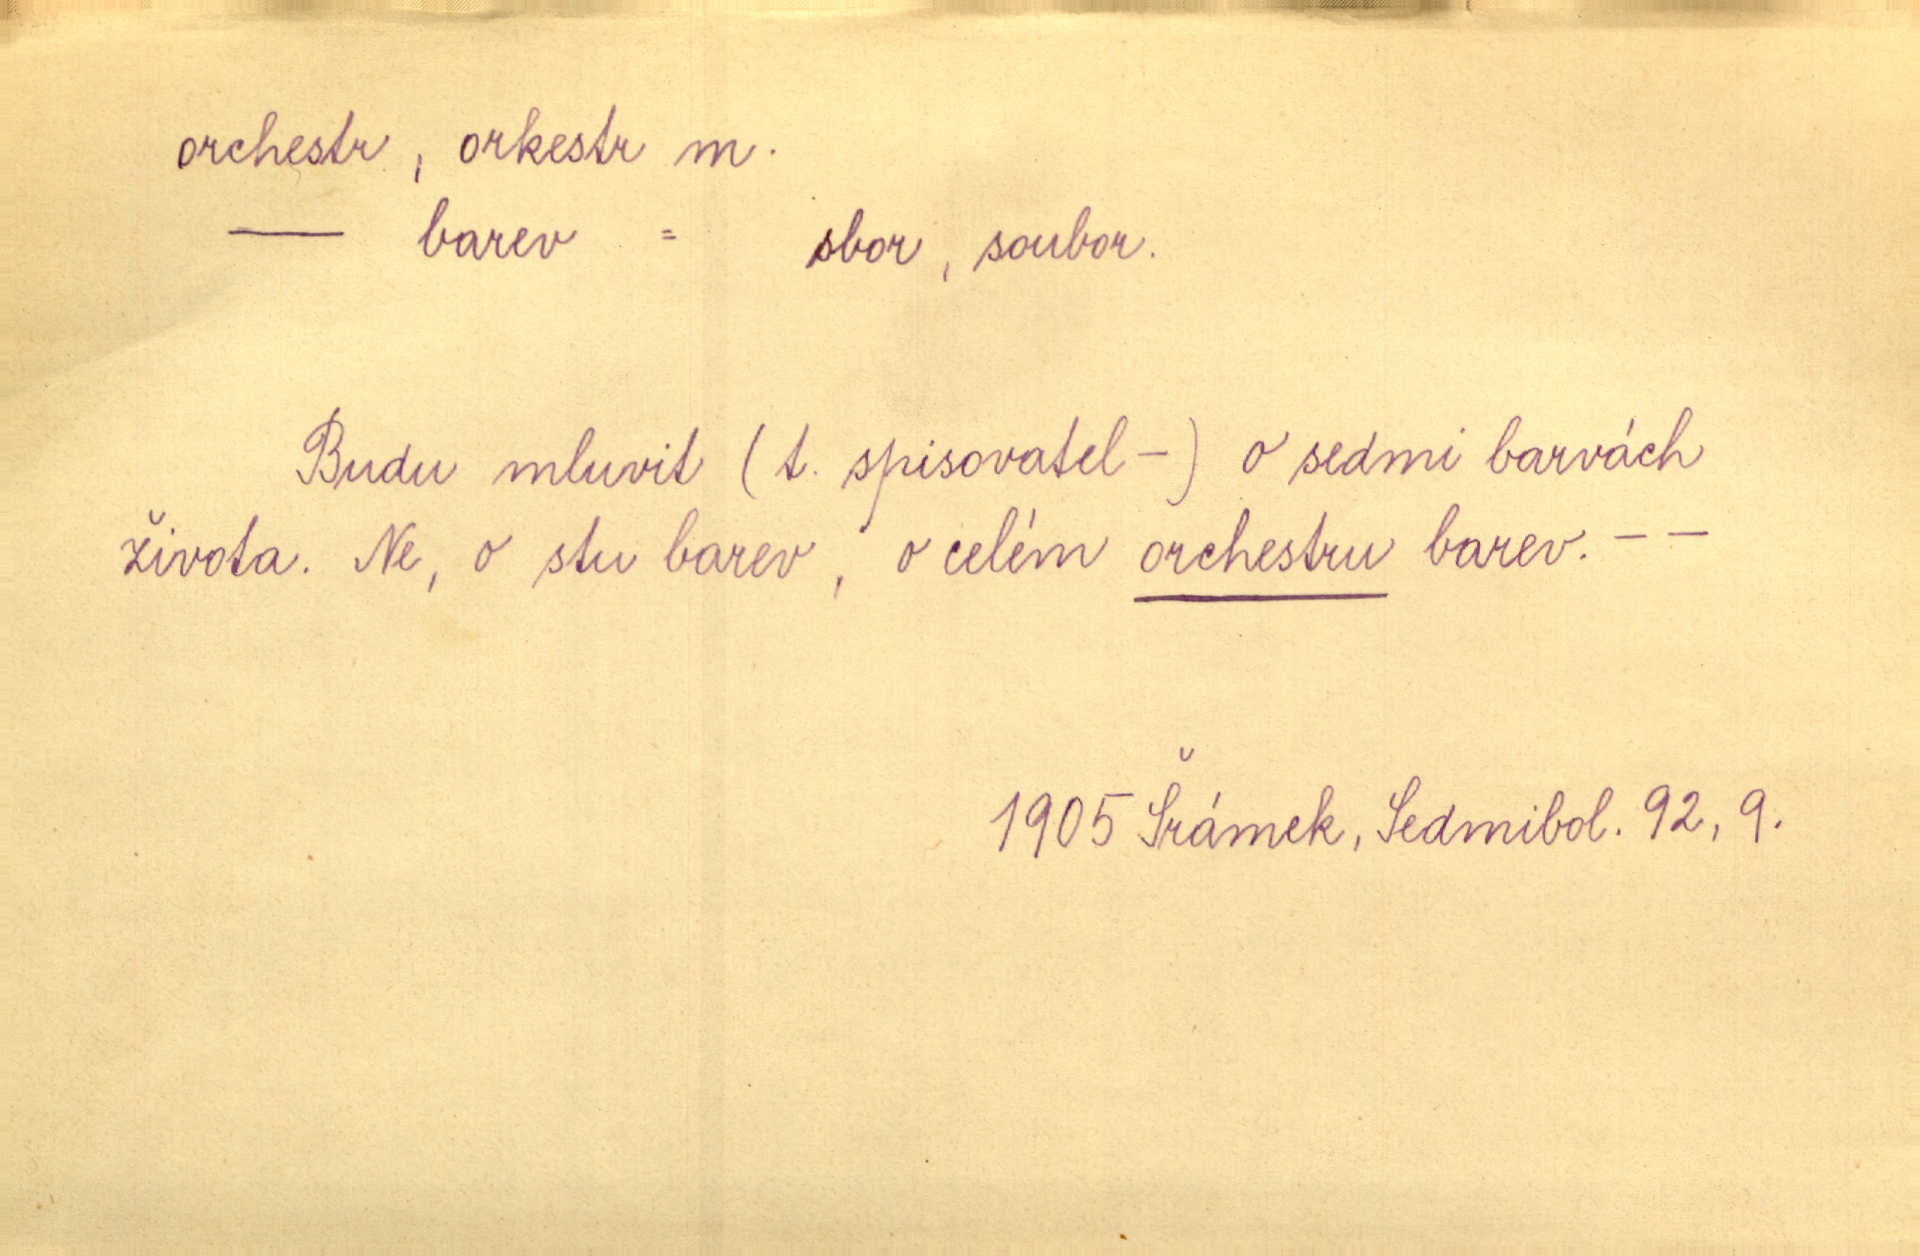 orchestr, orkestr m.
— barev = sbor, soubor.
Budu mluvit (t. spisovatel –) o sedmi barvách
života. Ne, o stu barev, o celém orchestru barev. – –
1905 Šrámek, Sedmibol. 92, 9.